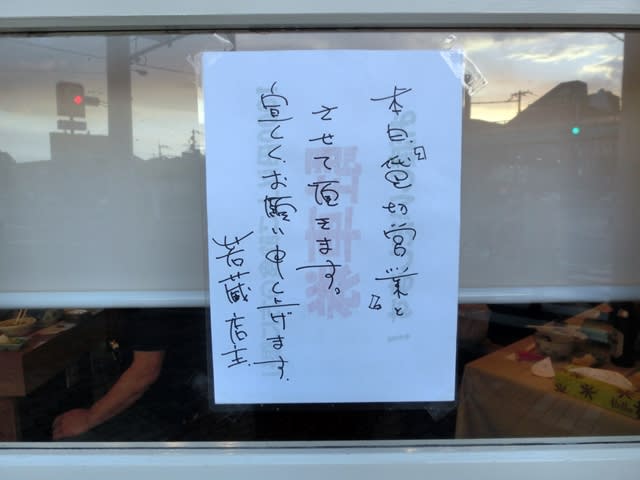 本日貸切営業と
させて頂きます。
宜しくお願い申し上げます.
若蔵店主